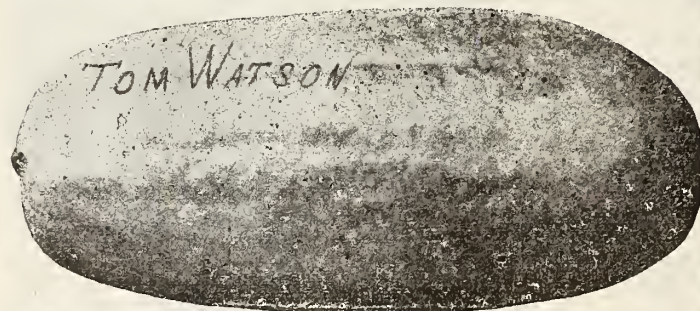 TOM WATSON